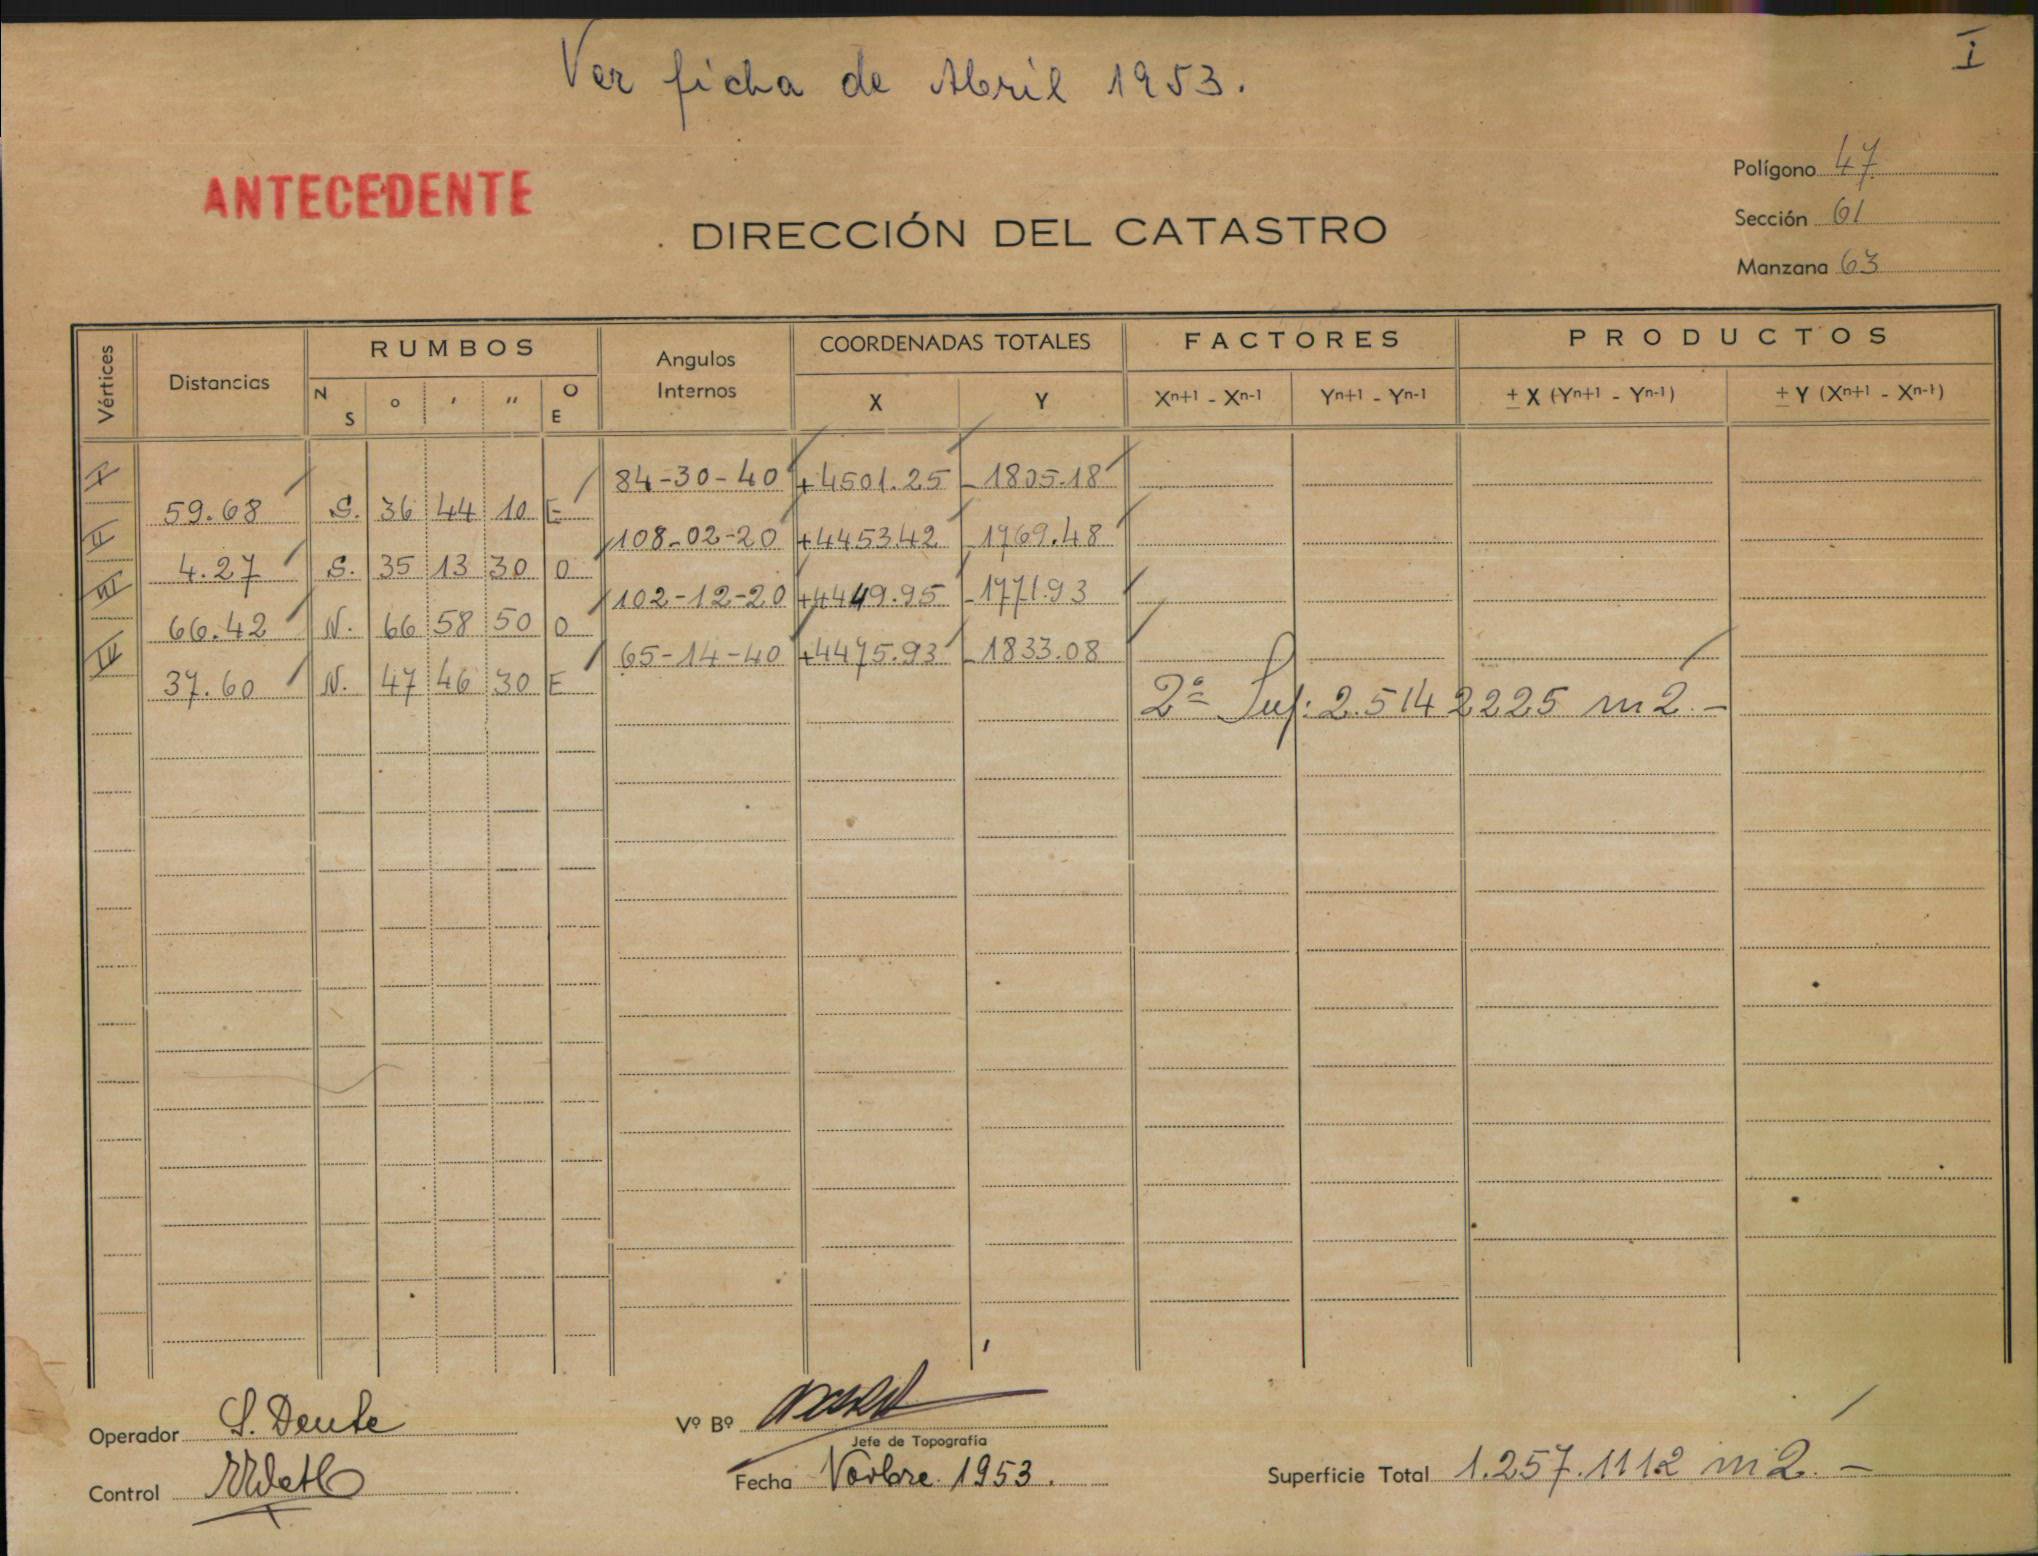 I
Ver ficha de Abril 1953.
ANTECEDENTE
DIRECCIÓN DEL CATASTRO
Polígono 47
Sección 61
Manzana 63
Vértices Distancias RUMBOS Angulos Internos COORDENADAS TOTALES FACTORES PRODUCTOS
N S o ' " O E X Y Xn+1 - Xn-1 Yn+1 - Yn-1 ± X (Yn+1 - Yn-1) ± Y (Xn+1 - Xn-1)
I 84-30-40 +4501.25 -1805.18
59.68 S. 36 44 10 E
II 108-02-20 +4453.42 -1769.48
4.27 S. 35 13 30 O
III 102-12-20 +4449.95 -1771.93
66.42 N. 66 58 50 O
IV 65-14-40 +4475.93 -1833.08
37.60 N. 47 46 30 E
2ª Sup: 2.514 2225 m2.-
Operador S. Dente
Control
Vº Bº
Jefe de Topografía
Fecha Novbre. 1953.
Superficie Total 1.257.1112 m2.-